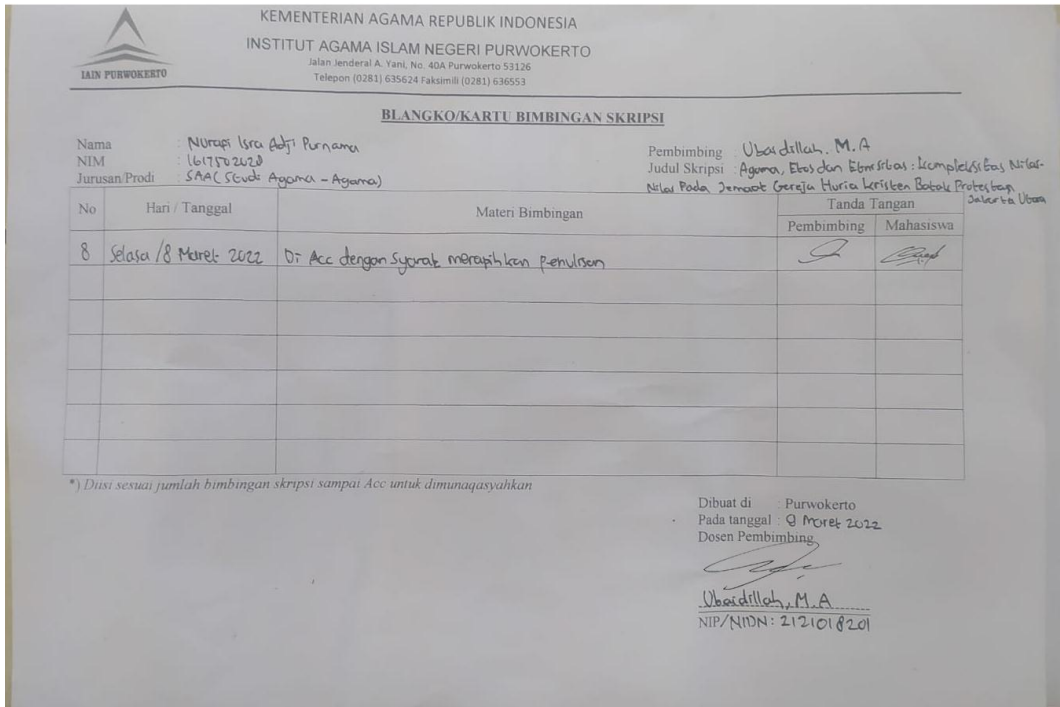 KEMENTERIAN AGAMA REPUBLIK INDONESIA
INSTITUT AGAMA ISLAM NEGERI PURWOKERTO
Jalan Jenderal A. Yani, No. 40A Purwokerto 53126
Telepon (0281) 635624 Faksimili (0281) 636553
IAIN PURWOKERTO
BLANGKO/KARTU BIMBINGAN SKRIPSI
Nama : Nurapi Isra Adji Purnama
NIM : 1617502028
Jurusan/Prodi : SAA (Studi Agama - Agama)
Pembimbing : Ubaidillah. M.A
Judul Skripsi : Agama, Etos dan Etnisitas : Kompleksitas Nilai-
Nilai Pada Jemaat Gereja Huria Kristen Batak Protestan
Jakarta Utara
No Hari / Tanggal Materi Bimbingan Tanda Tangan
Pembimbing Mahasiswa
8 Selasa /8 Maret 2022 Di Acc dengan Syarat merapihkan penulisan
*) Diisi sesuai jumlah bimbingan skripsi sampai Acc untuk dimunaqasyahkan
Dibuat di : Purwokerto
Pada tanggal : 9 Maret 2022
Dosen Pembimbing
Ubaidillah, M.A
NIP/NIDN: 2121018201